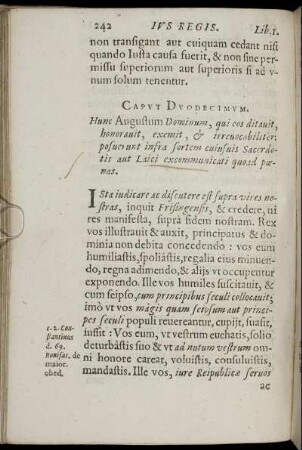 242 IVS REGIS. Lib. 1.
non transigant aut cuiquam cedant nisi
quando Iusta causa fuerit, & non sine per-
missu superiorum aut superioris si ad v-
num solum tenentur.
CAPVT DVODECIMVM.
Hunc Augustum Dominum, qui eos ditauit,
honorauit, exemit, & irreuocabiliter
posuerunt infra sortem cuiusuis Sacerdo-
tis aut Laici excommunicati quoad pœ-
nas.
ISta iudicare ac discutere est supra vires no-
stras, inquit Frisingensis, & credere, vi
res manifesta, supra fidem nostram. Rex
vos illustrauit & auxit, principatus & do-
minia non debita concedendo : vos eum
humiliastis, spoliastis, regalia eius minuen-
do, regna adimendo, & alijs vt occupentur
exponendo. Ille vos humiles suscitauit, &
cum seipso, cum principibus seculi collocauit;
imò vt vos magis quam seipsum aut princi-
pes seculi populi reuerentur, cupijt, suasit,
iussit : Vos eum, vt vestrum euchatis, solio
deturbastis suo & vt ad nutum vestrum om-
ni honore careat, voluistis, consuluistis,
mandastis. Ille vos, iure Reipublicæ seruos
1. 2. Con-
stantinus
d. 69.
Bonifac. de
maior.
obed.
ac